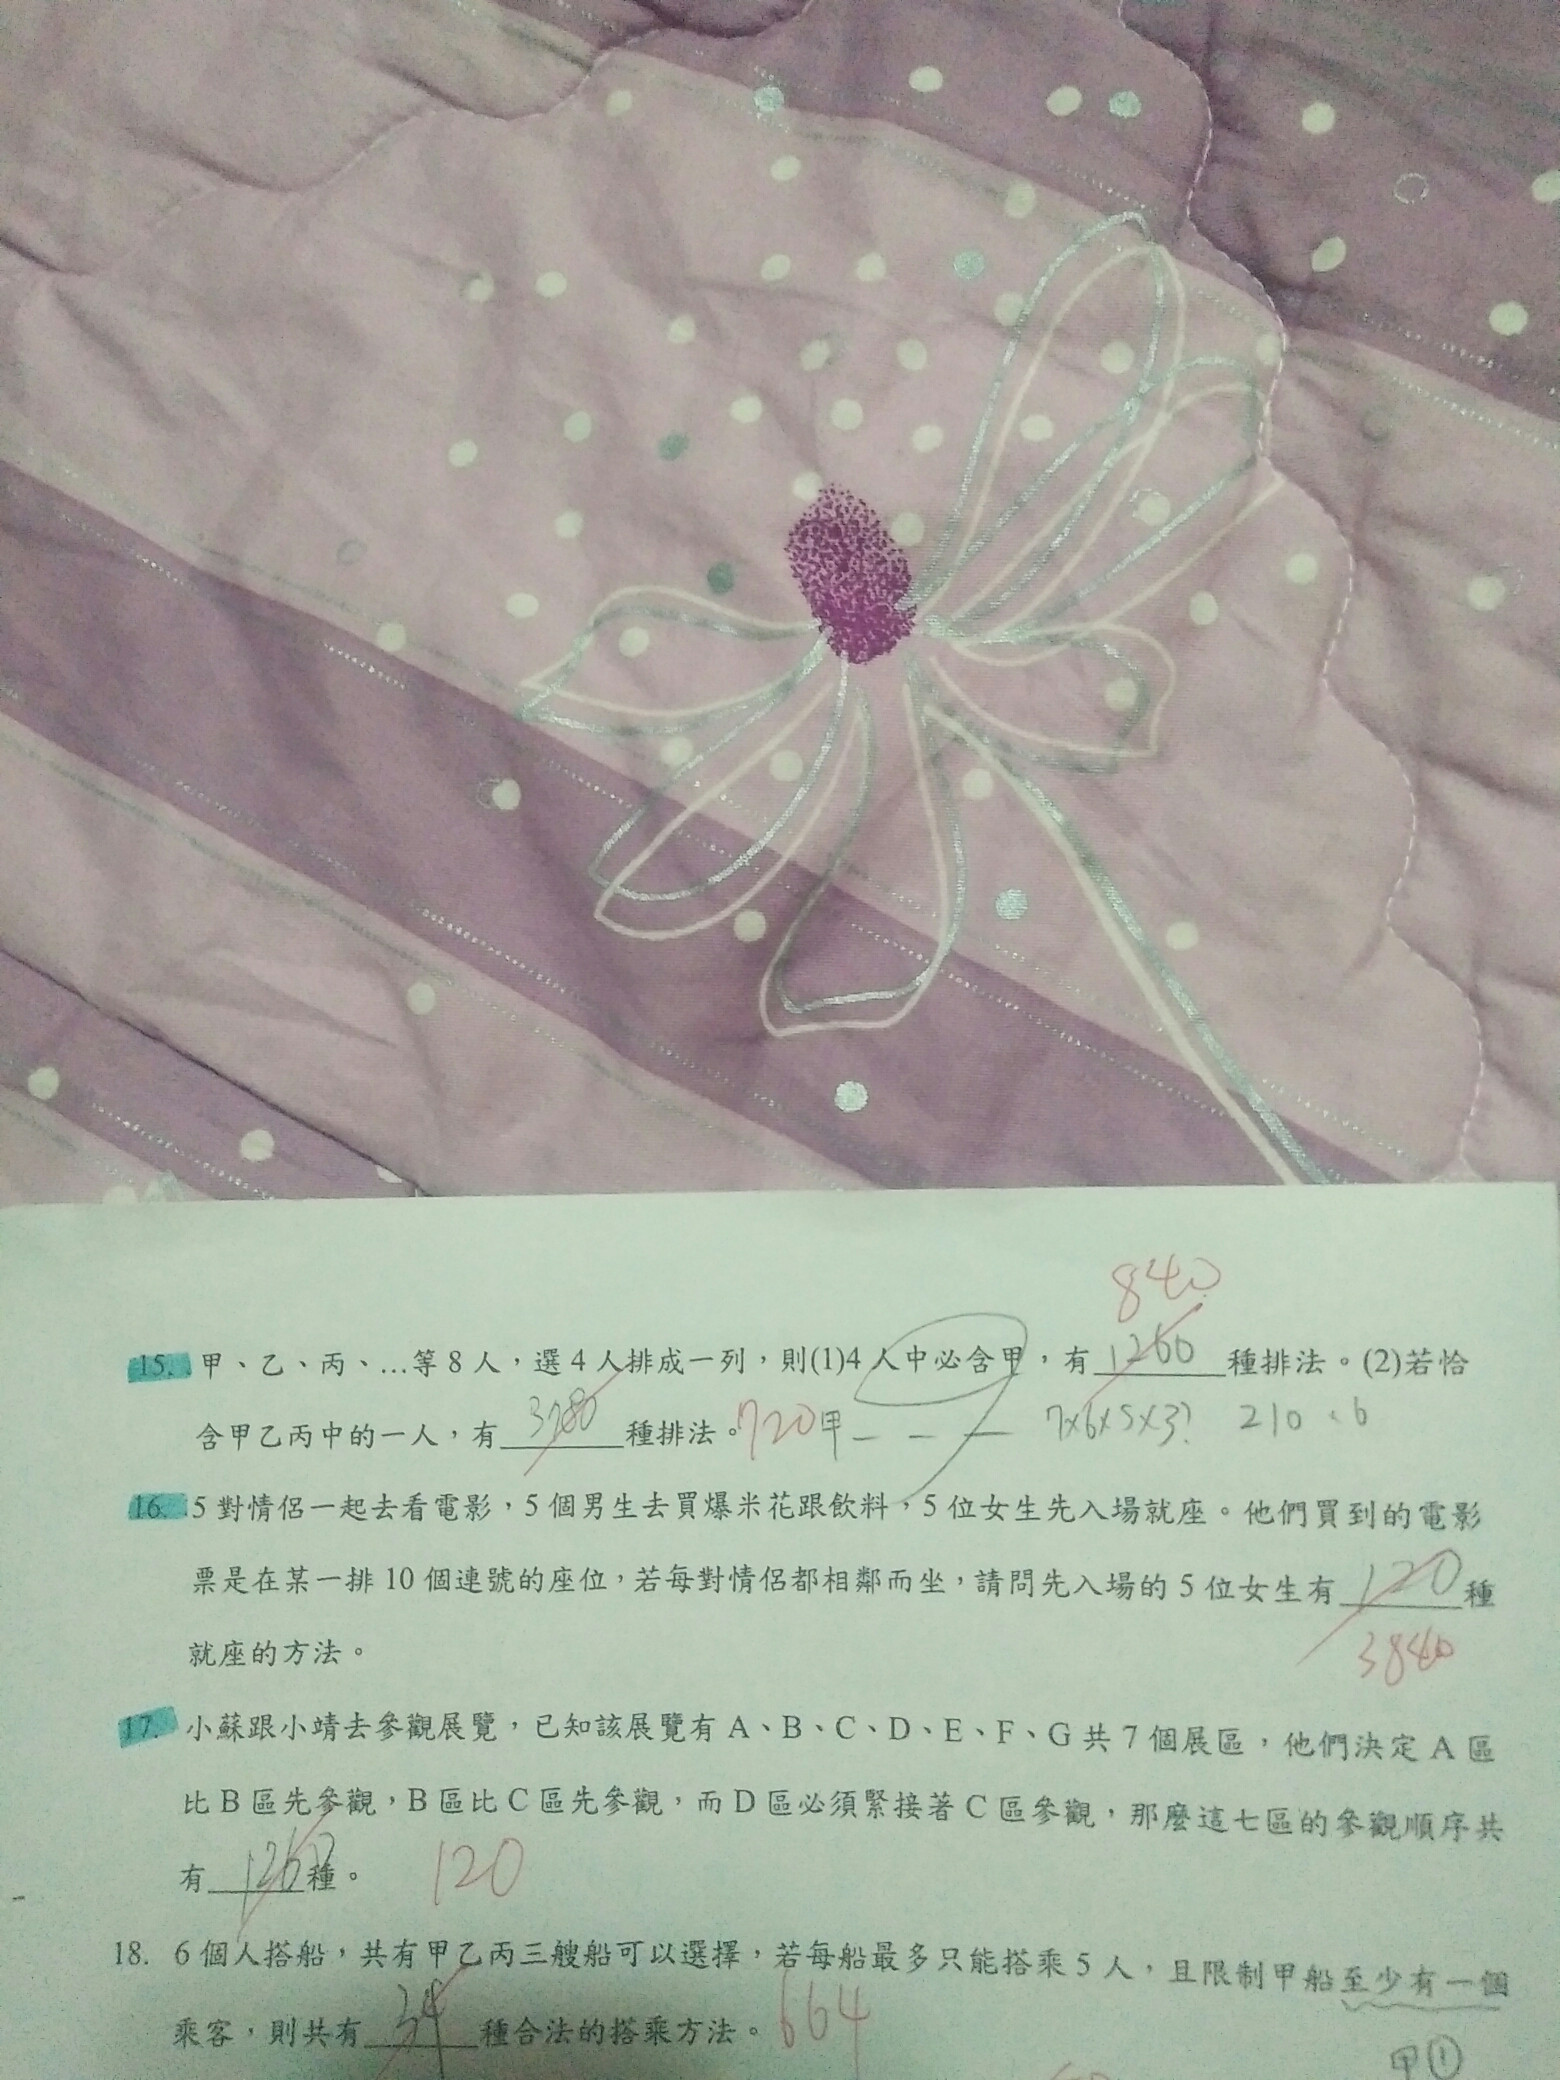 840
15. 甲、乙、丙、…等8人，選4人排成一列，則(1)4人中必含甲，有1260種排法。(2)若恰
含甲乙丙中的一人，有3780種排法。720甲— — — 7×6×5×3? 210·6
16. 5對情侶一起去看電影，5個男生去買爆米花跟飲料，5位女生先入場就座。他們買到的電影
票是在某一排10個連號的座位，若每對情侶都相鄰而坐，請問先入場的5位女生有120種
就座的方法。 3840
17. 小蘇跟小靖去參觀展覽，已知該展覽有A、B、C、D、E、F、G共7個展區，他們決定A區
比B區先參觀，B區比C區先參觀，而D區必須緊接著C區參觀，那麼這七區的參觀順序共
有1260種。 120
18. 6個人搭船，共有甲乙丙三艘船可以選擇，若每船最多只能搭乘5人，且限制甲船至少有一個
乘客，則共有34種合法的搭乘方法。664
甲①